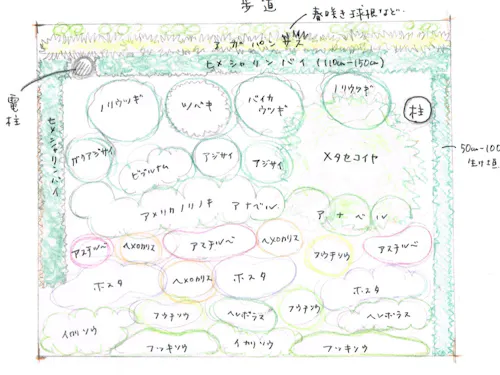 歩道
春咲き球根など…
アガパンサス
ヒメシャリンバイ (110cm-150cm)
電柱
ヒメシャリンバイ
ノリウツギ
ツバキ
バイカウツギ
ノリウツギ
柱
50cm-100
生け垣
ガクアジサイ
ビブルナム
アジサイ
アジサイ
メタセコイヤ
アメリカノリノキ アナベル
アナベル
アスチルベ
ヘメロカリス
アスチルベ
ヘメロカリス
フウチソウ
アスチルベ
ホスタ
ヘメロカリス
ホスタ
ホスタ
イカリソウ
フウチソウ
ヘレボラス
フウチソウ
ヘレボラス
フッキソウ
イカリソウ
フッキソウ